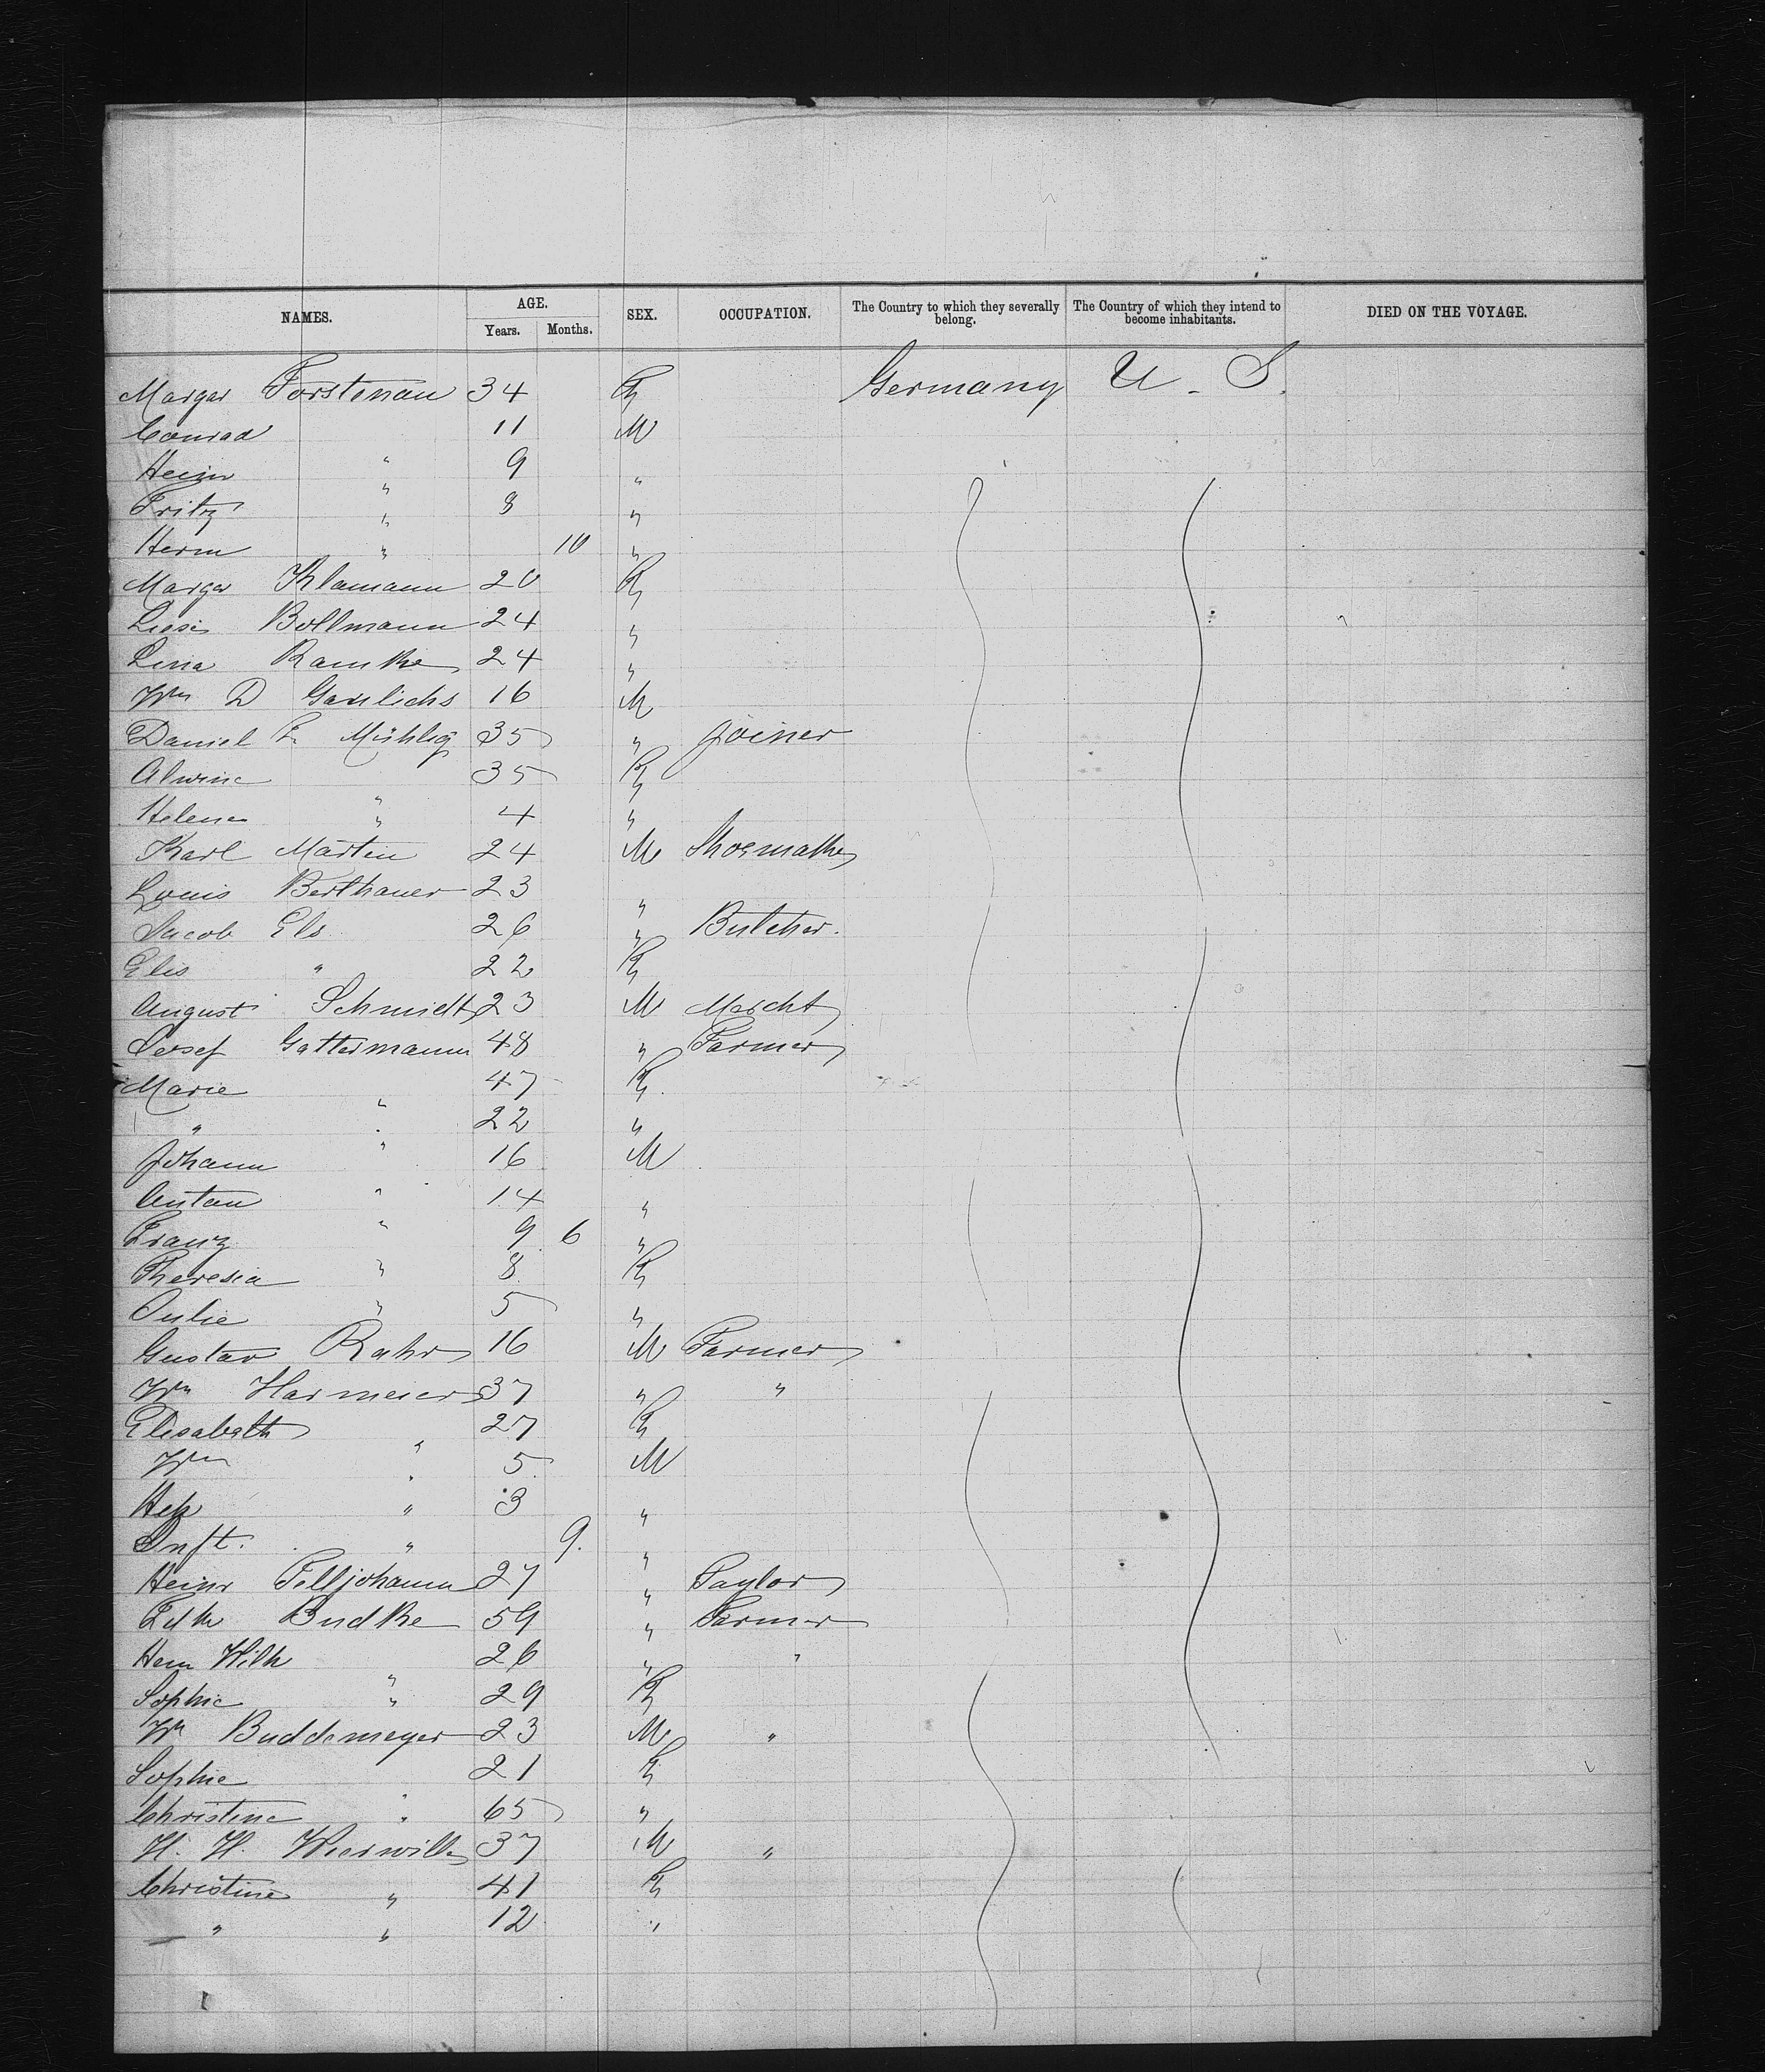 NAMES. AGE. SEX. OCCUPATION. The Country to which they severally belong. The Country of which they intend to become inhabitants. DIED ON THE VOYAGE.
Years. Months.
Margar Forstenau 34 F Germany U. S.
Conrad " 11 M
Heinr " 9 "
Fritz " 8 "
Herm " 10 "
Margar Klamann 20 F
Liesi Bollmann 24 "
Lina Ramke 24 "
Wm D Garlichs 16 M
Daniel F. Mühlig 35 " Joiner
Alwine " 35 F
Helene " 4 "
Karl Martin 24 M Shoemaker
Louis Berthauer 23 "
Jacob Els 26 " Butcher.
Elis " 22 F
August Schmidt 23 M Mercht
Josef Gattermann 48 " Farmer
Marie " 47 F
" " 22 "
Johann " 16 M
Anton " 14 "
Franz " 9 6 "
Theresia " 8 F
Julie " 5 "
Gustav Rahr 16 M Farmer
Wm Harmeier 37 " "
Elisabeth " 27 F
Wm " 5 M
" 3 "
Inft. " 9. "
Heinr Telljohann 27 " Taylor
Budke 59 " Farmer
Herm Wilh " 26 " "
Sophie " 29 F
Wm Buddemeyer 23 M "
Sophie " 21 F
Christine " 65 "
H. H. Wierwille 37 M "
Christine " 41 F
" " 12 "